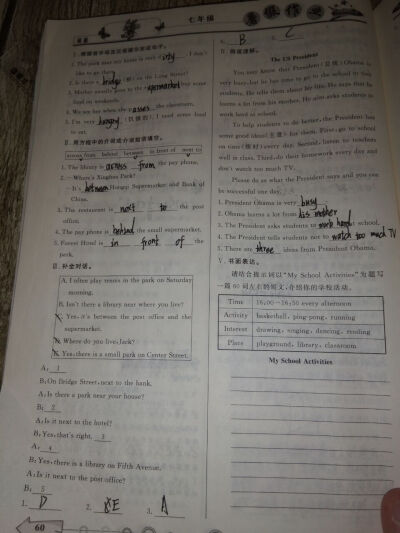 七年级
4. B 5. C
like to go there.
2. Is there a bridge (桥) on the Long Street?
3. Mother usually goes to the supermarket buy some
food on weekends.
the classroom.
5. I'm very hungry (饥饿的). I need some food
to eat.
Ⅱ. 用方框中的介词或介词短语填空。
across from behind between in front of next to
1. The library is across from the pay phone.
2. —Where's Xinghua Park?
—It's between Hongqi Supermarket and Bank of
China.
3. The restaurant is next to the post
office.
4. The pay phone is behind the small supermarket.
5. Forest Hotel is in front of the
park.
Ⅲ. 补全对话。
A. I often play tennis in the park on Saturday
morning.
B. Isn't there a library near where you live?
C. Yes, it's between the post office and the
supermarket.
D. Where do you live, Jack?
E. Yes, there is a small park on Center Street.
A: 1
B: On Bridge Street, next to the bank.
A: Is there a park near your house?
B: 2
A: Is it next to the hotel?
B: Yes, that's right. 3
A: 4
B: Yes, there is a library on Fifth Avenue.
A: Is it next to the post office?
B: 5
1. D 2. E 3. A
60
Ⅳ. 阅读理解。
The US President
You may know that President (总统) Obama is
very busy, but he has time to go to the school to see
students. He tells them about his life. He says that he
learns a lot from his mother. He also asks students to
work hard at school.
To help students to do better, the President has
some good ideas (主意) for them. First, go to school
on time (按时) every day. Second, listen to teachers
well in class. Third, do their homework every day and
don't watch too much TV.
Please do as what the President says and you can
be successful one day.
1. President Obama is very busy
2. Obama learns a lot from his mother
3. The President asks students to work hard at school.
4. The President tells students not to watch too much TV
5. There are three ideas from President Obama.
Ⅴ. 书面表达。
请结合提示词以“My School Activities”为题写
一篇60词左右的短文,介绍你的学校活动。
Time 16:00—16:50 every afternoon
Activity basketball, ping-pong, running
Interest drawing, singing, dancing, reading
Place playground, library, classroom
My School Activities